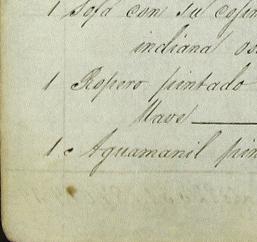 1 Sofá con su cojin
indiana
1 Ropero pintado
llave
1 Aguamanil pin